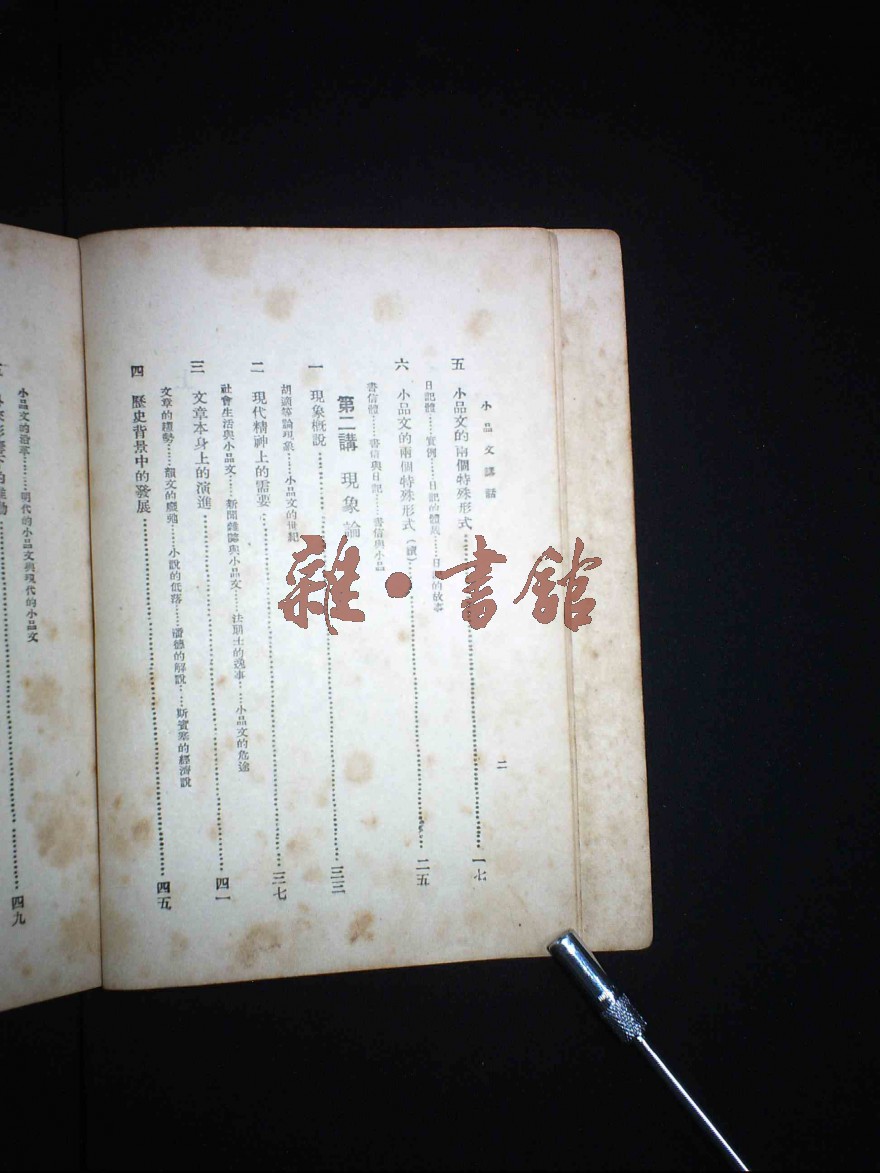 小品文講話
二
五 小品文的兩個特殊形式…………一七
日記體……實例……日記的體裁……日記的故事
六 小品文的兩個特殊形式（續）…………二五
書信體……書信與日記……書信與小品
第二講 現象論
一 現象概說…………三三
胡適等論現象……小品文的世紀
二 現代精神上的需要…………三七
社會生活與小品文……新聞雜誌與小品文……法朗士的逸事……小品文的危途
三 文章本身上的演進…………四一
文章的趨勢……韻文的廢弛……小說的低落……潘德的解說……斯賓塞的經濟說
四 歷史背景中的發展…………四五
小品文的沿革……明代的小品文與現代的小品文
四九
雜·書館